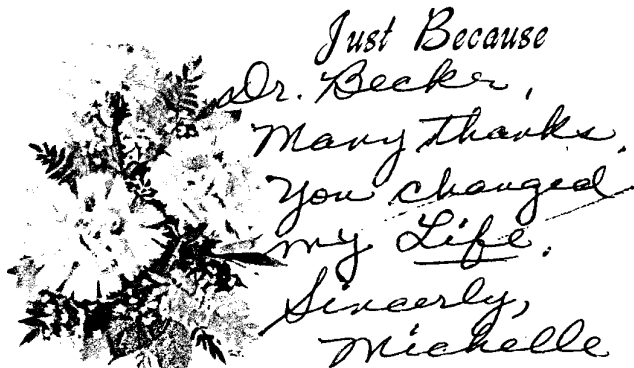 Just Because
Dr. Becker,
Many thanks.
You changed
my Life.
Sincerly,
Michelle